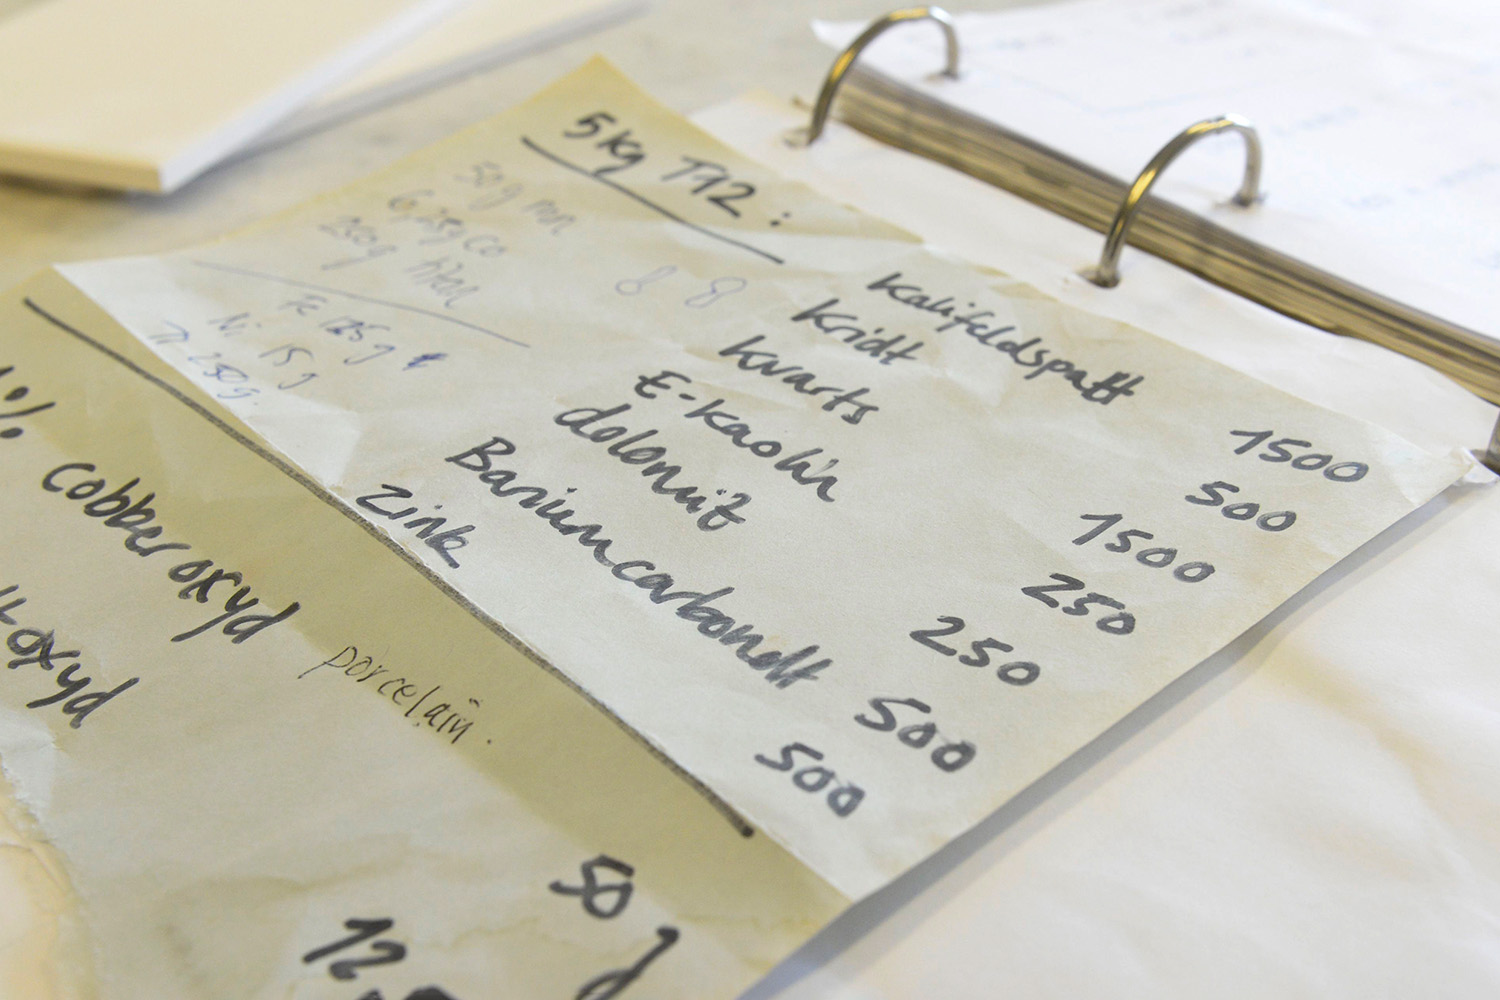 5 kg T92:
50g mn
6,25g co
250g titan
Fe 125g
Ni 15g
Ti 250g.
8 8
Kalifeldspatt 1500
Kridt 500
Kvarts 1500
E-kaolin 250
dolomit 250
Bariumcarbonatt 500
Zink 500
% cobberoxyd 50 g
oxyd 12,5
porcelain.